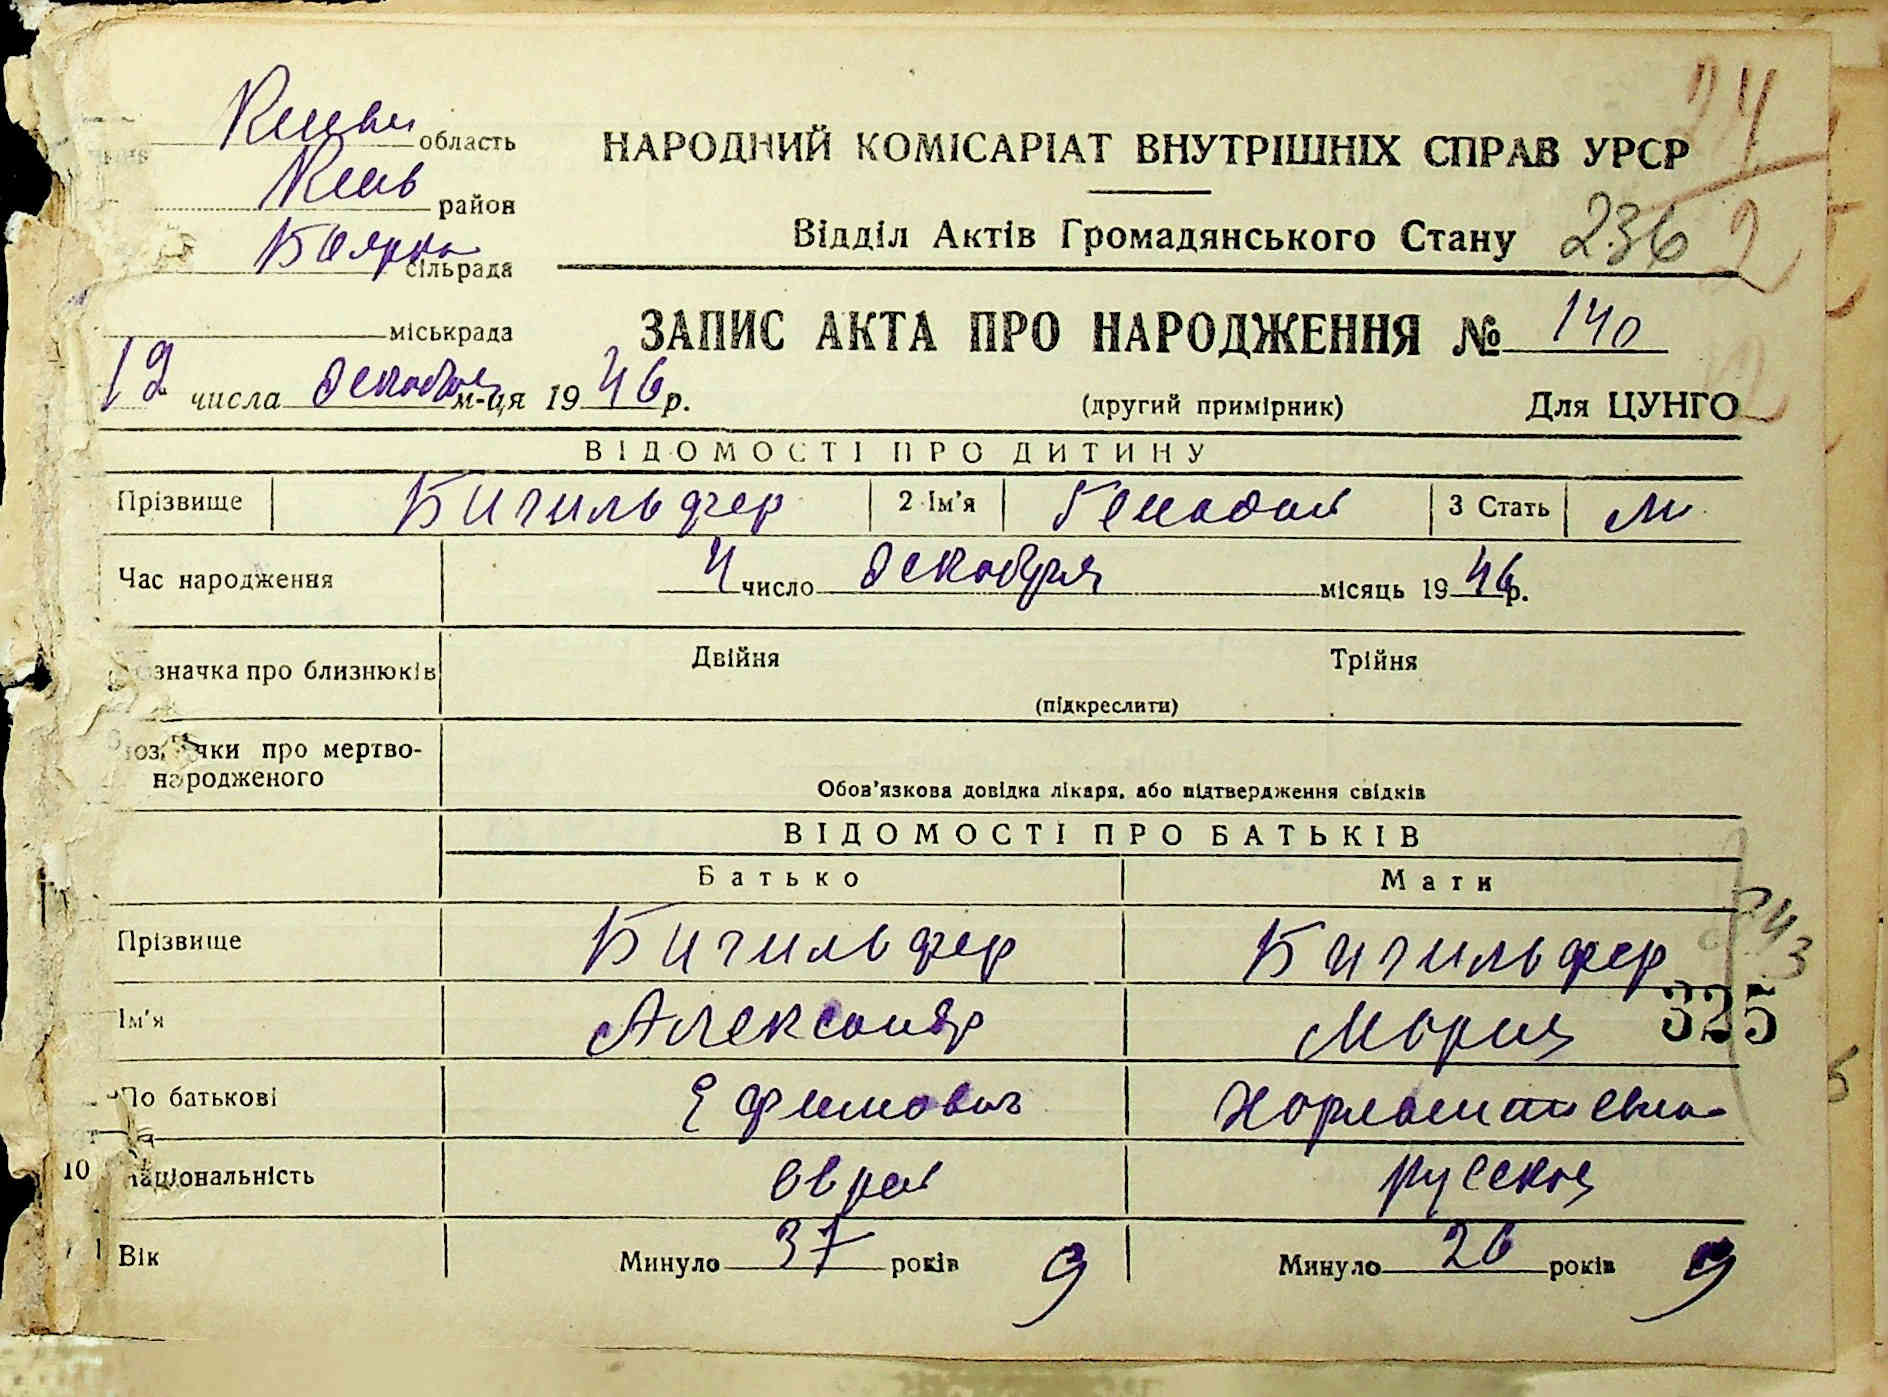 Киеви область
Киев район
Боярка сільрада
міськрада
12 числа декабря м-ця 1946 р.
НАРОДНИЙ КОМІСАРІАТ ВНУТРІШНІХ СПРАВ УРСР
Відділ Актів Громадянського Стану 236
ЗАПИС АКТА ПРО НАРОДЖЕННЯ № 140
(другий примірник) Для ЦУНГО
ВІДОМОСТІ ПРО ДИТИНУ
Прізвище Бигильфер 2 Ім'я Генадий 3 Стать м
Час народження 4 число декабря місяць 1946 р.
значка про близнюків Двійня Трійня
(підкреслити)
поз чки про мертво-
народженого
Обов'язкова довідка лікаря, або підтвердження свідків
ВІДОМОСТІ ПРО БАТЬКІВ
Батько Мати
Прізвище Бигильфер Бигильфер
Ім'я Александр Мария
325
По батькові Ефимович Харлампиевна
10 Національність еврей русская
Вік Минуло 37 років 9 Минуло 26 років 9